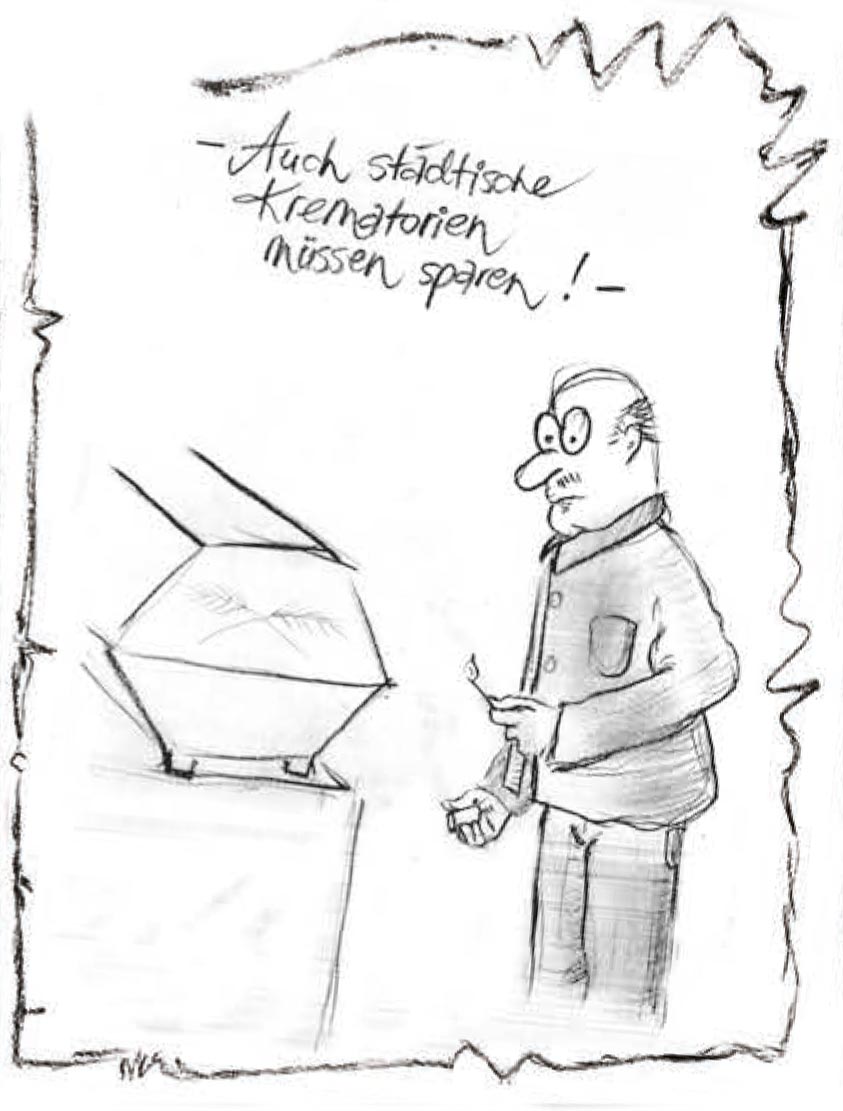 - Auch städtische
Krematorien
müssen sparen! -